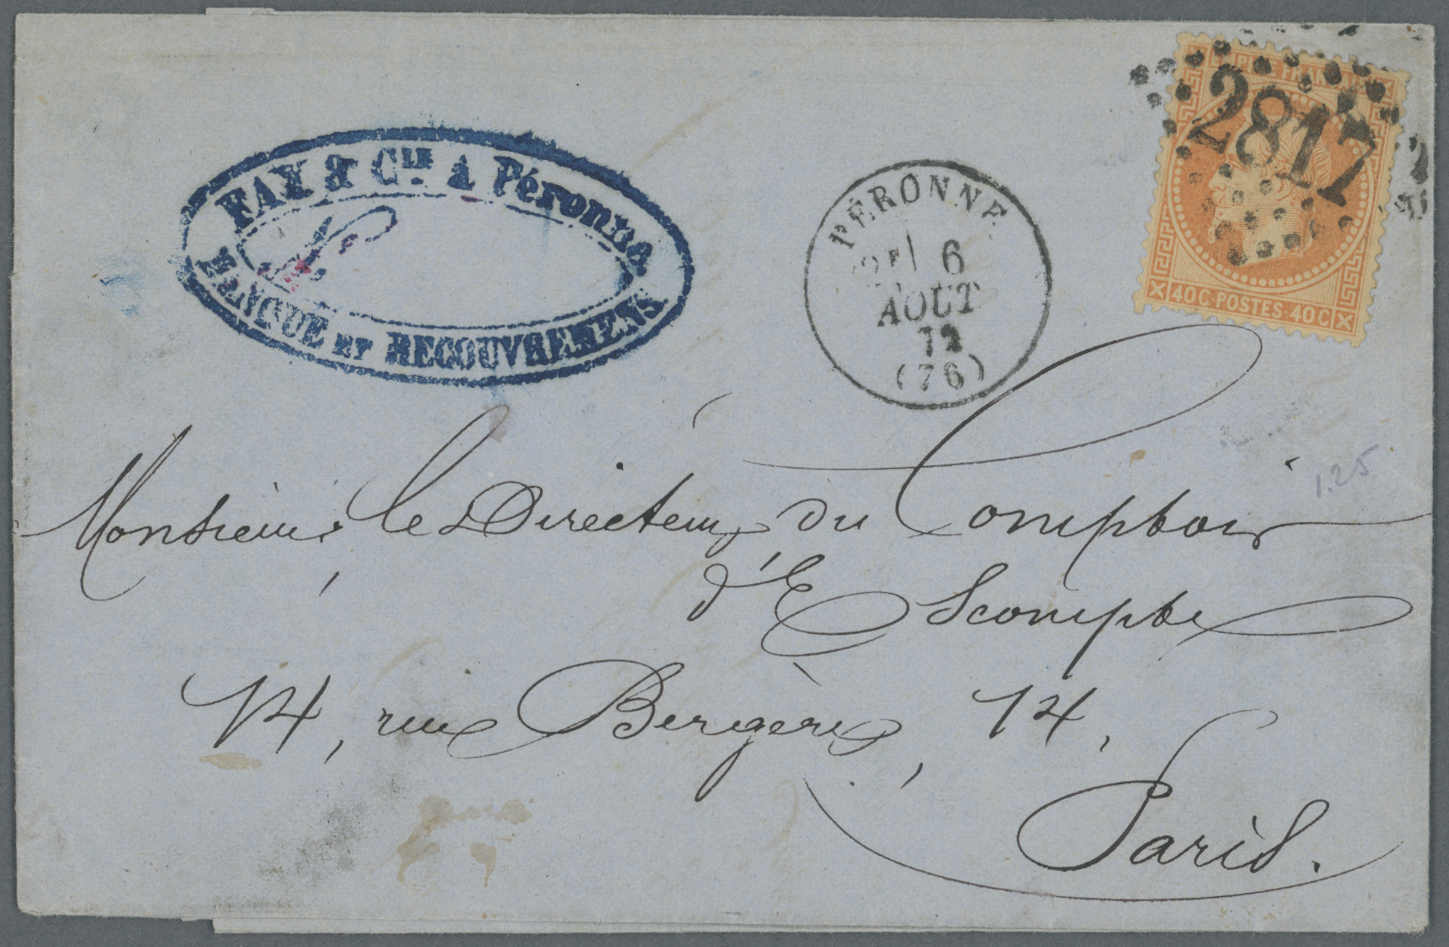 FAX & CIE A Péronne.
BANQUE ET RECOUVREMENS
PÉRONNE
2E 6
AOUT
72
(76)
2817
40C POSTES 40C
1.25
Monsieur le Directeur du Comptoir
d'Escompte
14, rue Bergère, 14.
Paris.